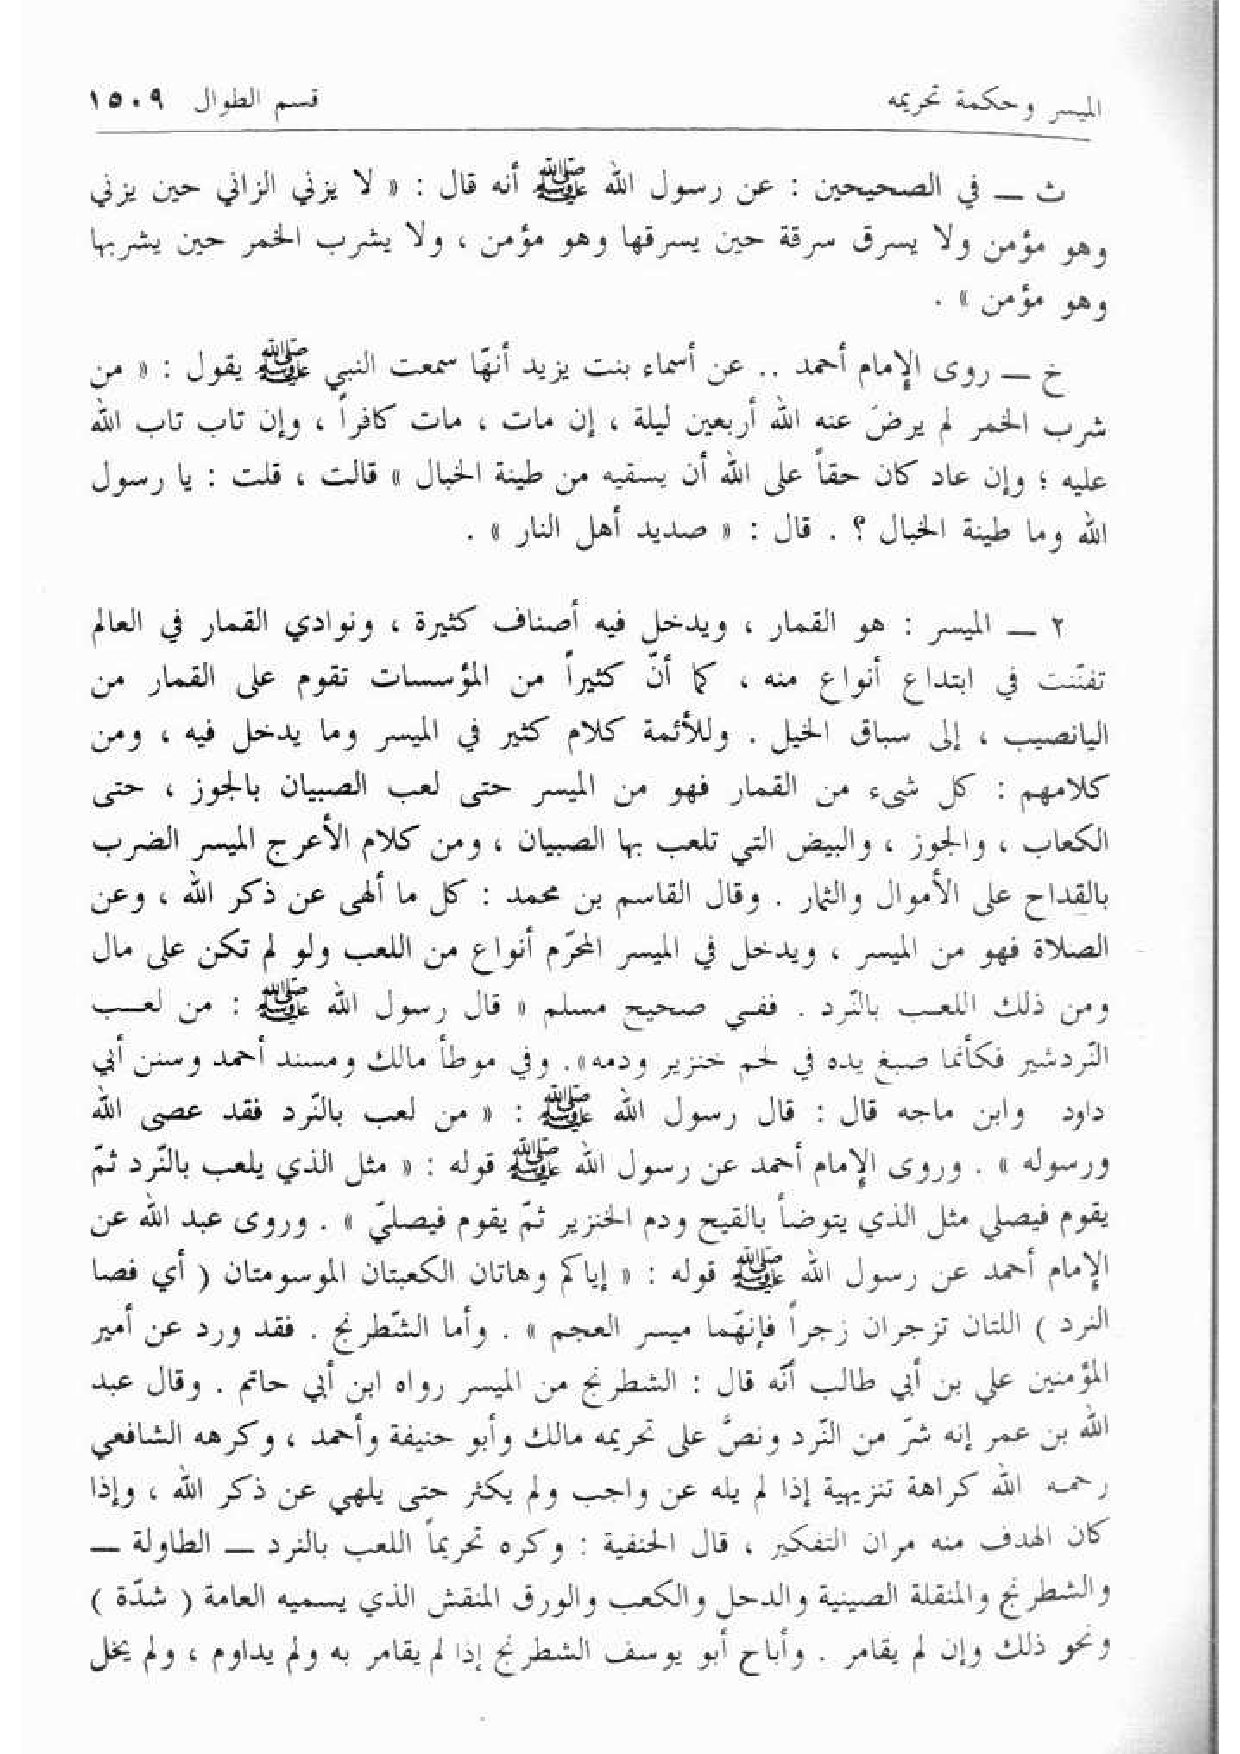 الميسر وحكمة تحريمه قسم الطوال ١٥٠٩
ث ــ في الصحيحين : عن رسول الله ﷺ أنه قال : « لا يزني الزاني حين يزني
وهو مؤمن ولا يسرق سرقة حين يسرقها وهو مؤمن ، ولا يشرب الخمر حين يشربها
وهو مؤمن » .
خ ــ روى الإمام أحمد .. عن أسماء بنت يزيد أنهّا سمعت النبي ﷺ يقول : « من
شرب الخمر لم يرضَ عنه الله أربعين ليلة ، إن مات ، مات كافراً ، وإن تاب تاب الله
عليه ؛ وإن عاد كان حقاً على الله أن يسقيه من طينة الخبال » قالت ، قلت : يا رسول
الله وما طينة الخبال ؟ . قال : « صديد أهل النار » .
٢ ــ الميسر : هو القمار ، ويدخل فيه أصناف كثيرة ، ونوادي القمار في العالم
تفنّنت في ابتداع أنواع منه ، كما أنّ كثيراً من المؤسسات تقوم على القمار من
اليانصيب ، إلى سباق الخيل . وللأئمة كلام كثير في الميسر وما يدخل فيه ، ومن
كلامهم : كل شىء من القمار فهو من الميسر حتى لعب الصبيان بالجوز ، حتى
الكعاب ، والجوز ، والبيض التي تلعب بها الصبيان ، ومن كلام الأعرج الميسر الضرب
بالقداح على الأموال والثمار . وقال القاسم بن محمد : كل ما ألهى عن ذكر الله ، وعن
الصلاة فهو من الميسر ، ويدخل في الميسر المحرّم أنواع من اللعب ولو لم تكن على مال
ومن ذلك اللعب بالنّرد . ففي صحيح مسلم « قال رسول الله ﷺ : من لعب
النّردشير فكأنما صبغ يده في لحم خنزير ودمه». وفي موطأ مالك ومسند أحمد وسنن أبي
داود وابن ماجه قال : قال رسول الله ﷺ : « من لعب بالنّرد فقد عصى الله
ورسوله » . وروى الإمام أحمد عن رسول الله ﷺ قوله : « مثل الذي يلعب بالنّرد ثمّ
يقوم فيصلي مثل الذي يتوضأ بالقيح ودم الخنزير ثمّ يقوم فيصليّ » . وروى عبد الله عن
الإمام أحمد عن رسول الله ﷺ قوله : « إياكم وهاتان الكعبتان الموسومتان ( أي فصا
النرد ) اللتان تزجران زجراً فإنهّما ميسر العجم » . وأما الشّطرنج . فقد ورد عن أمير
المؤمنين علي بن أبي طالب أنّه قال : الشطرنج من الميسر رواه ابن أبي حاتم . وقال عبد
الله بن عمر إنه شرّ من النّرد ونصَّ على تحريمه مالك وأبو حنيفة وأحمد ، وكرهه الشافعي
رحمه الله كراهة تنزيهية إذا لم يله عن واجب ولم يكثر حتى يلهي عن ذكر الله ، وإذا
كان الهدف منه مران التفكير ، قال الحنفية : وكره تحريماً اللعب بالنرد ــ الطاولة ــ
والشطرنج والمنقلة الصينية والدحل والكعب والورق المنقش الذي يسميه العامة ( شدّة )
ونحو ذلك وإن لم يقامر . وأباح أبو يوسف الشطرنج إذا لم يقامر به ولم يداوم ، ولم يخل